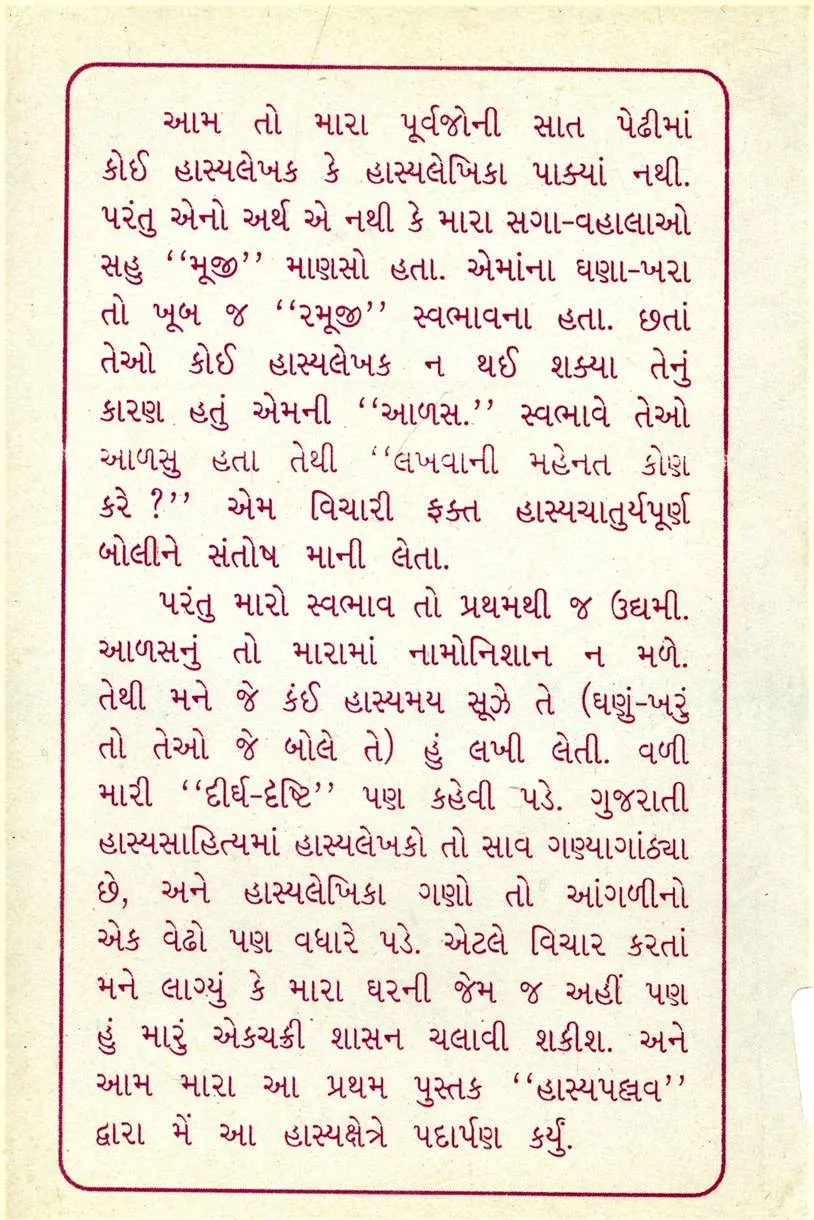 આમ તો મારા પૂર્વજોની સાત પેઢીમાં
કોઈ હાસ્યલેખક કે હાસ્યલેખિકા પાક્યાં નથી.
પરંતુ એનો અર્થ એ નથી કે મારા સગા-વહાલાઓ
સહુ ‘‘મૂજી’’ માણસો હતા. એમાંના ઘણા-ખરા
તો ખૂબ જ ‘‘રમૂજી’’ સ્વભાવના હતા. છતાં
તેઓ કોઈ હાસ્યલેખક ન થઈ શક્યા તેનું
કારણ હતું એમની ‘‘આળસ.’’ સ્વભાવે તેઓ
આળસુ હતા તેથી ‘‘લખવાની મહેનત કોણ
કરે ?’’ એમ વિચારી ફક્ત હાસ્યચાતુર્યપૂર્ણ
બોલીને સંતોષ માની લેતા.
પરંતુ મારો સ્વભાવ તો પ્રથમથી જ ઉદ્યમી.
આળસનું તો મારામાં નામોનિશાન ન મળે.
તેથી મને જે કંઈ હાસ્યમય સૂઝે તે (ઘણું-ખરું
તો તેઓ જે બોલે તે) હું લખી લેતી. વળી
મારી ‘‘દીર્ઘ-દૃષ્ટિ’’ પણ કહેવી પડે. ગુજરાતી
હાસ્યસાહિત્યમાં હાસ્યલેખકો તો સાવ ગણ્યાગાંઠ્યા
છે, અને હાસ્યલેખિકા ગણો તો આંગળીનો
એક વેઢો પણ વધારે પડે. એટલે વિચાર કરતાં
મને લાગ્યું કે મારા ઘરની જેમ જ અહીં પણ
હું મારું એકચક્રી શાસન ચલાવી શકીશ. અને
આમ મારા આ પ્રથમ પુસ્તક ‘‘હાસ્યપલ્લવ’’
દ્વારા મેં આ હાસ્યક્ષેત્રે પદાર્પણ કર્યું.